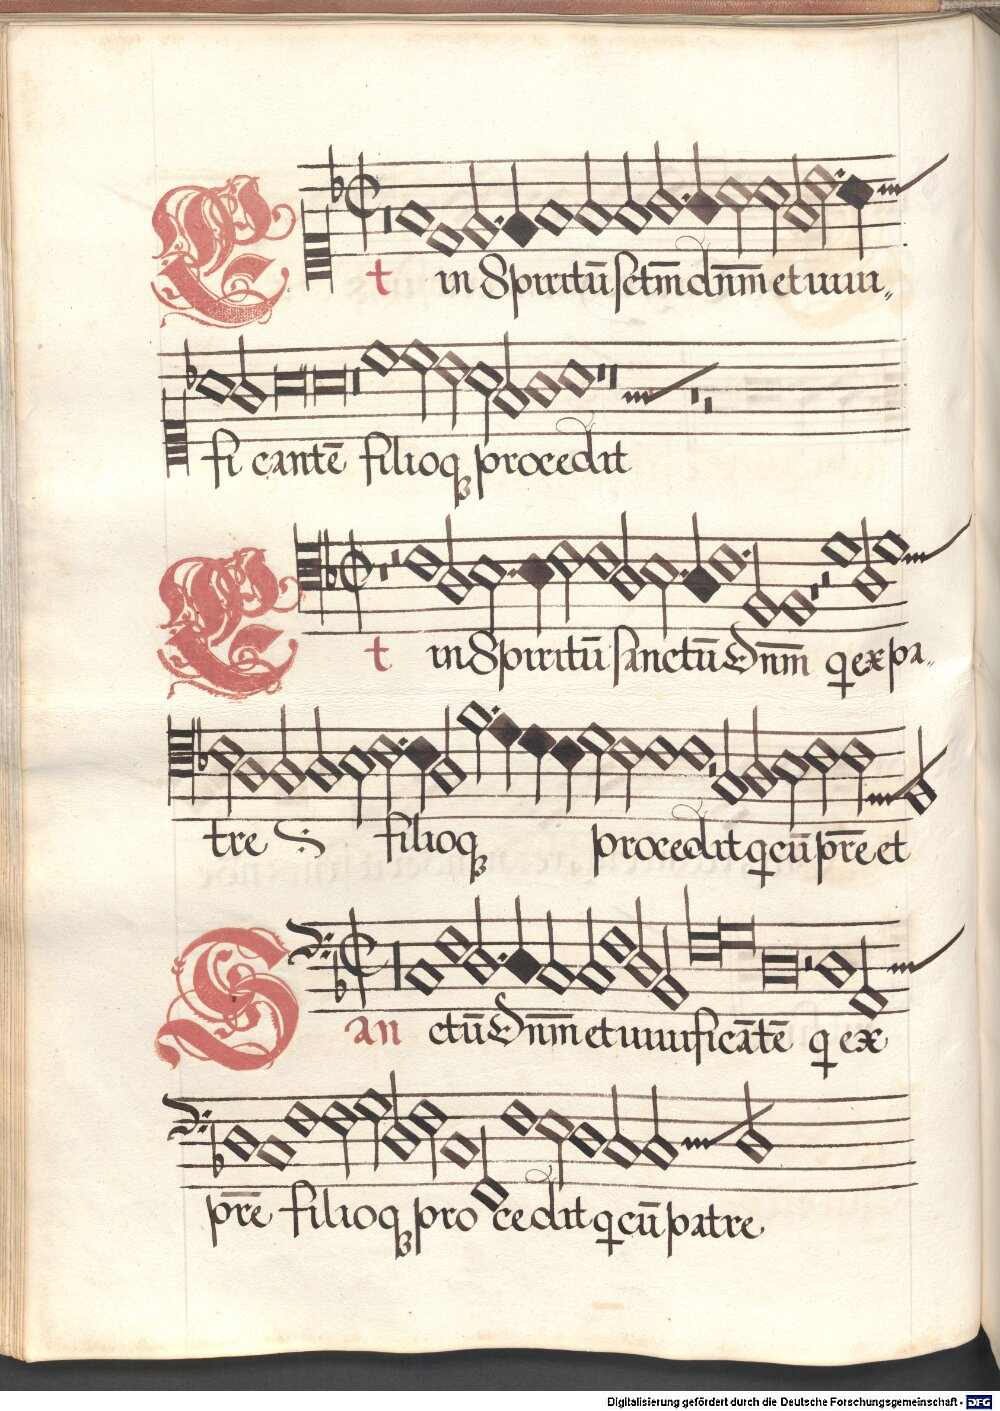 Et in Spiritū sctm̄ dnm̄ et uiui„
fi cantē filioqꝫ procedit
Et in Spiritū sanctū Dnm̄ q ex pa„
tre S filioqꝫ procedit q cū pr̄e et
Sanctū Dnm̄ et uiuificātē q ex
pr̄e filioqꝫ procedit q cū patre
Digitalisierung gefördert durch die Deutsche Forschungsgemeinschaft - DFG